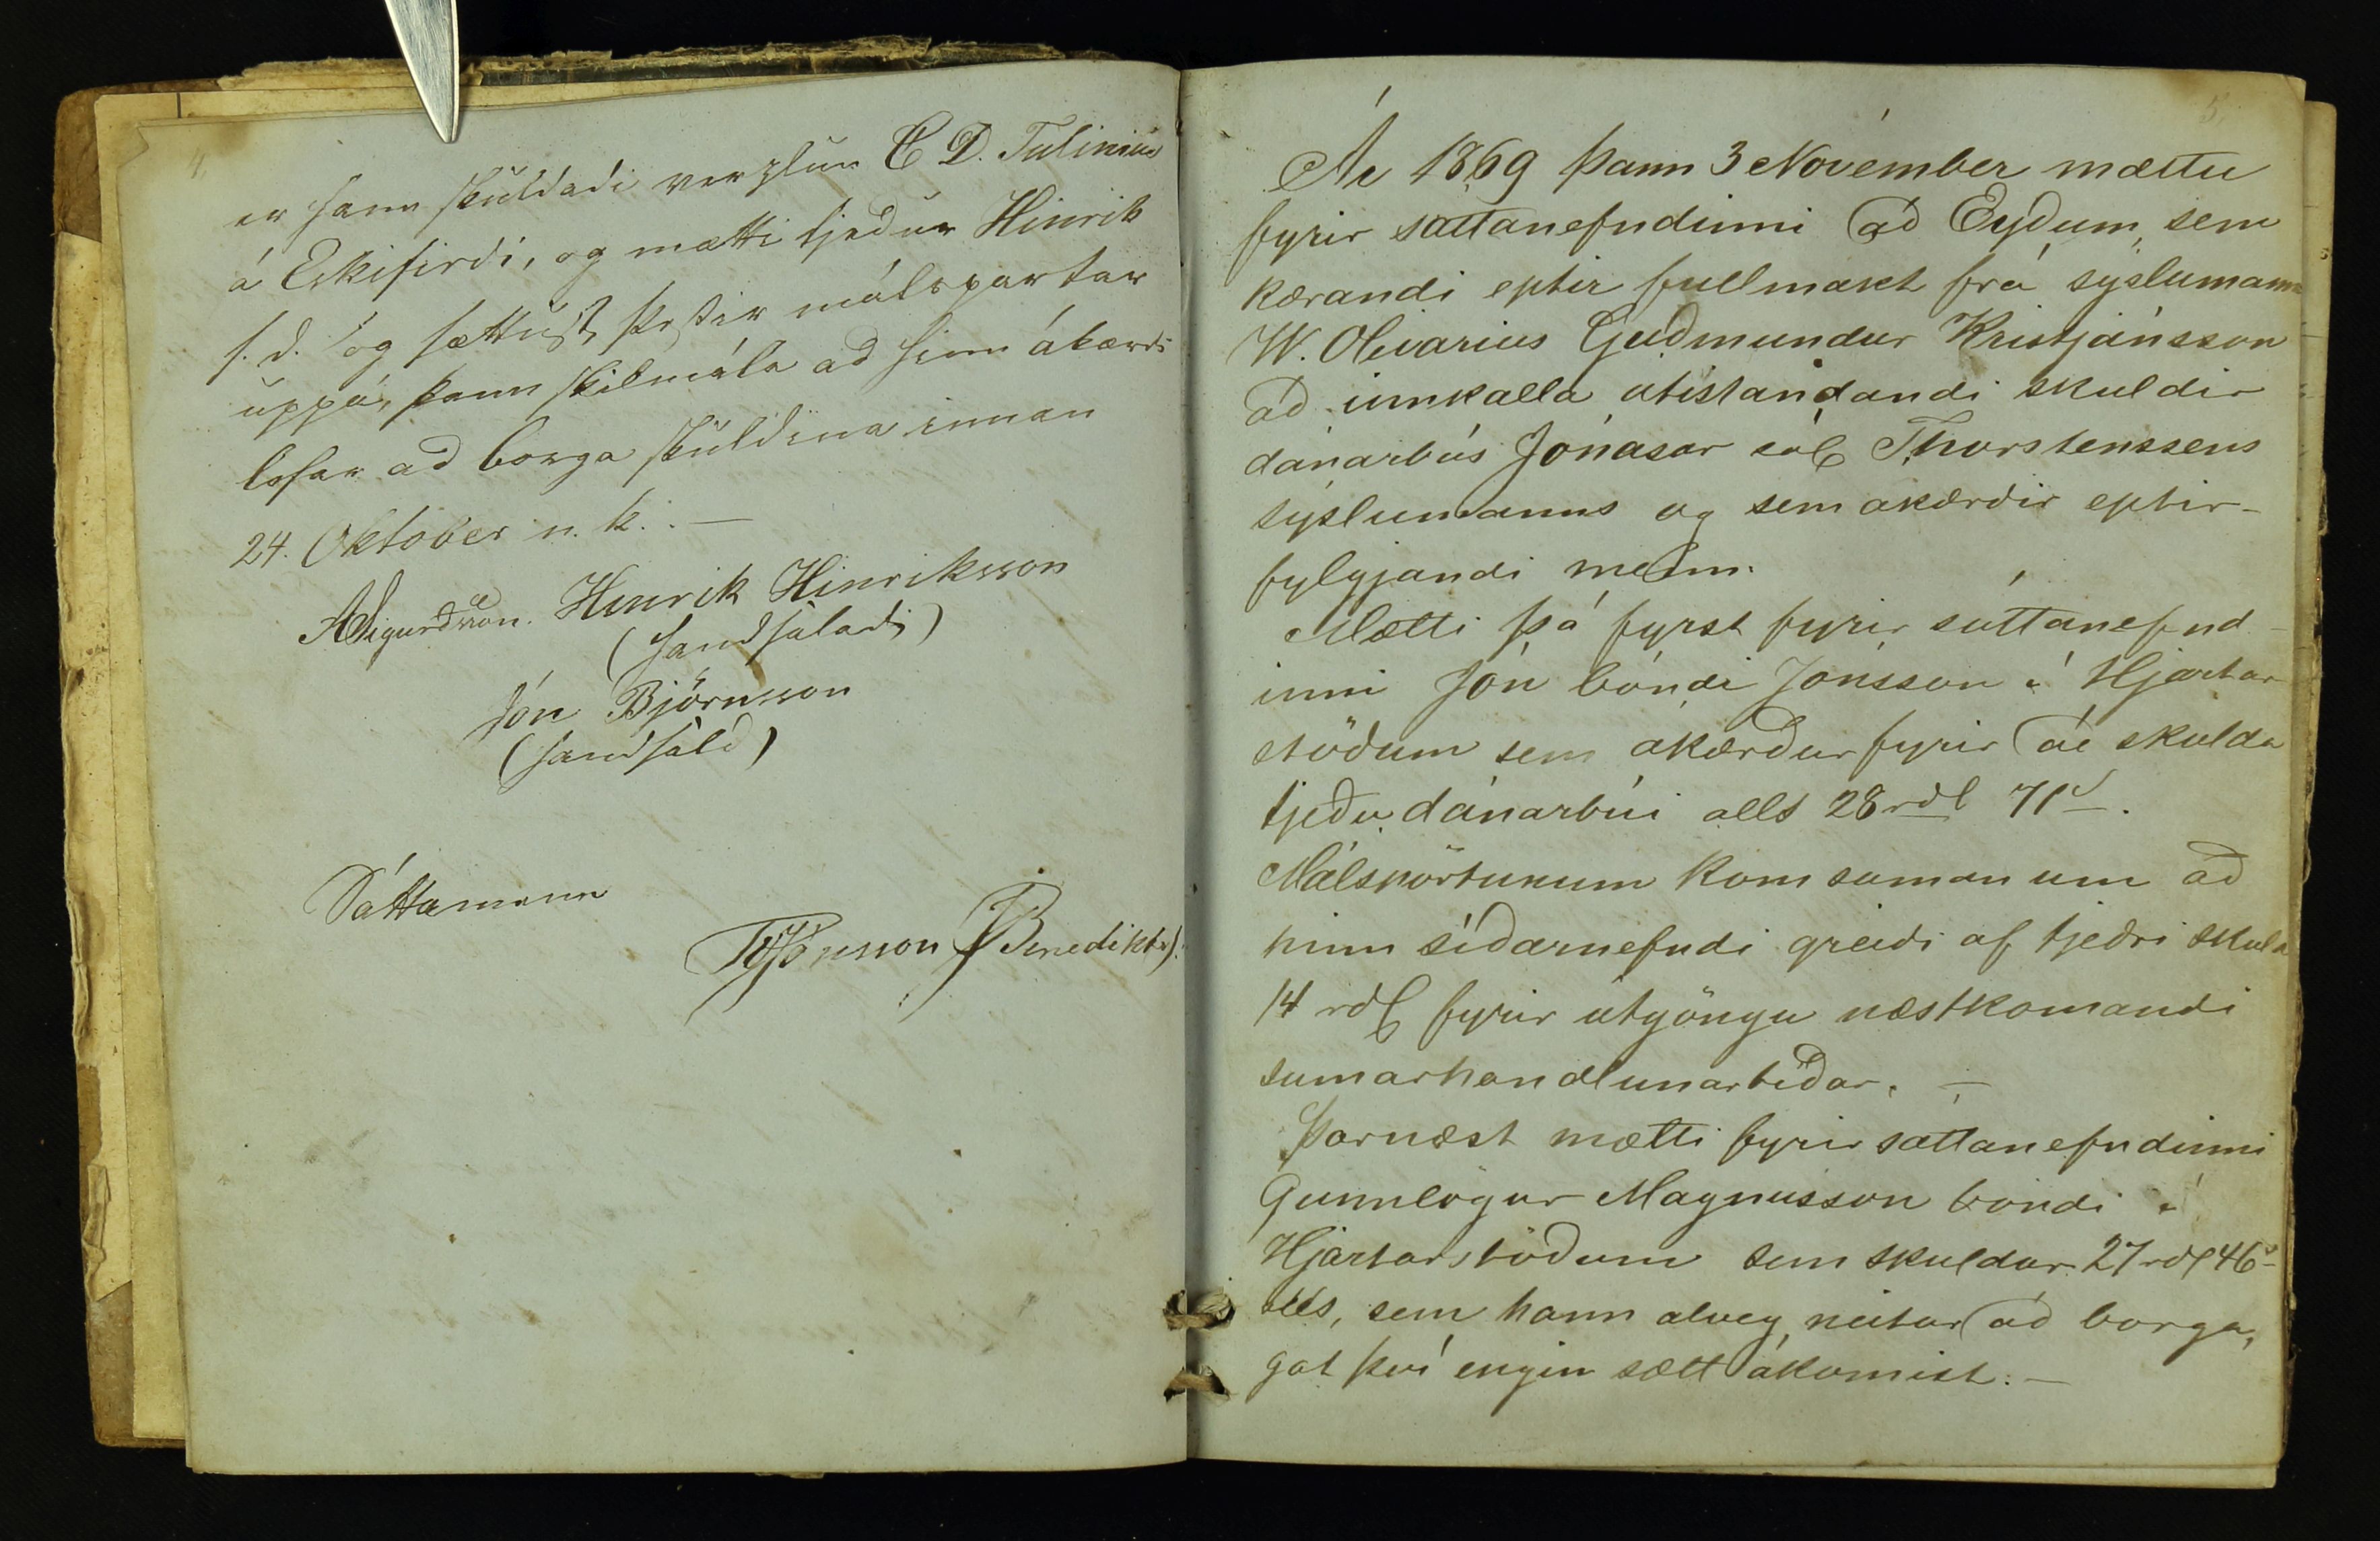 4.
er hann skuldadi verzlun C. D. Tulinius
á Eskifirdi, og mætti tjedur Hinrik
s. d. og sættust þessir málspartar
uppá, þann skilmála ad hinn ákærdi
lofar ad borga skuldina innan
24. Október n. k. . —
ASigurðsson. Hinrik Hinriksson
(handsaladi)
Jón Björnsson
(handsalad)
Sáttamenn
Jónsson Benedikts).
5.
Ár 1869 þann 3 November mættu
fyrir sáttanefndinni að Eyðum, sem
kærandi eptir fullmakt frá sýslumann
W. Olivarius Guðmundur Kristjánsson
að innkalla útistandandi skuldir
dánarbús Jónasar sál Thorstenssens
sýslumanns og sem ákærðir eptir-
fylgjandi menn.
Mætti þá fyrst fyrir sáttanefnd-
inni Jón bóndi Jónsson á Hjartar
stöðum sem ákærður fyrir að skulda
tjeðu dánarbúi alls 28 rdl 71 s.
Málspörtunum kom saman um að
hinn síðarnefndi greiði af tjeðri skuld
14 rdl fyrir útgöngu næstkomandi
sumarhandlunartíðar. —
Þarnæst mætti fyrir sáttanefndinni
Gunnlögur Magnusson bóndi á
Hjartarstöðum sem skuldar 27 rdl 46 s
alls, sem hann alveg neitar að borga,
gat því engin sætt ákomist. —